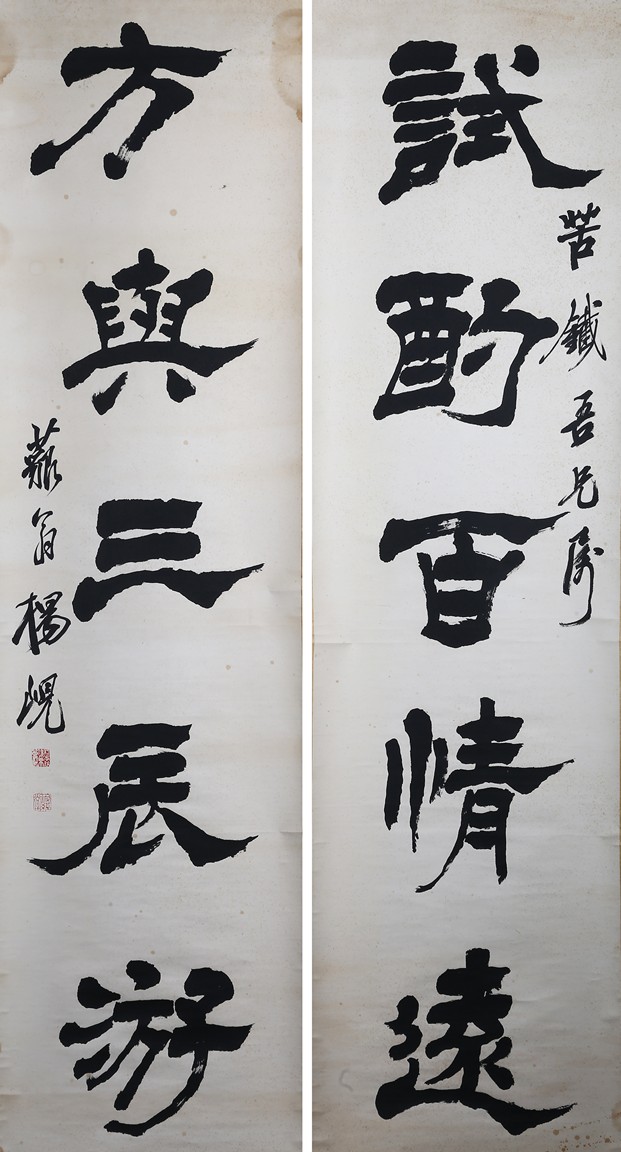 試酌百情遠
苦鐵吾兄屬
方與三辰游
藐翁楊峴